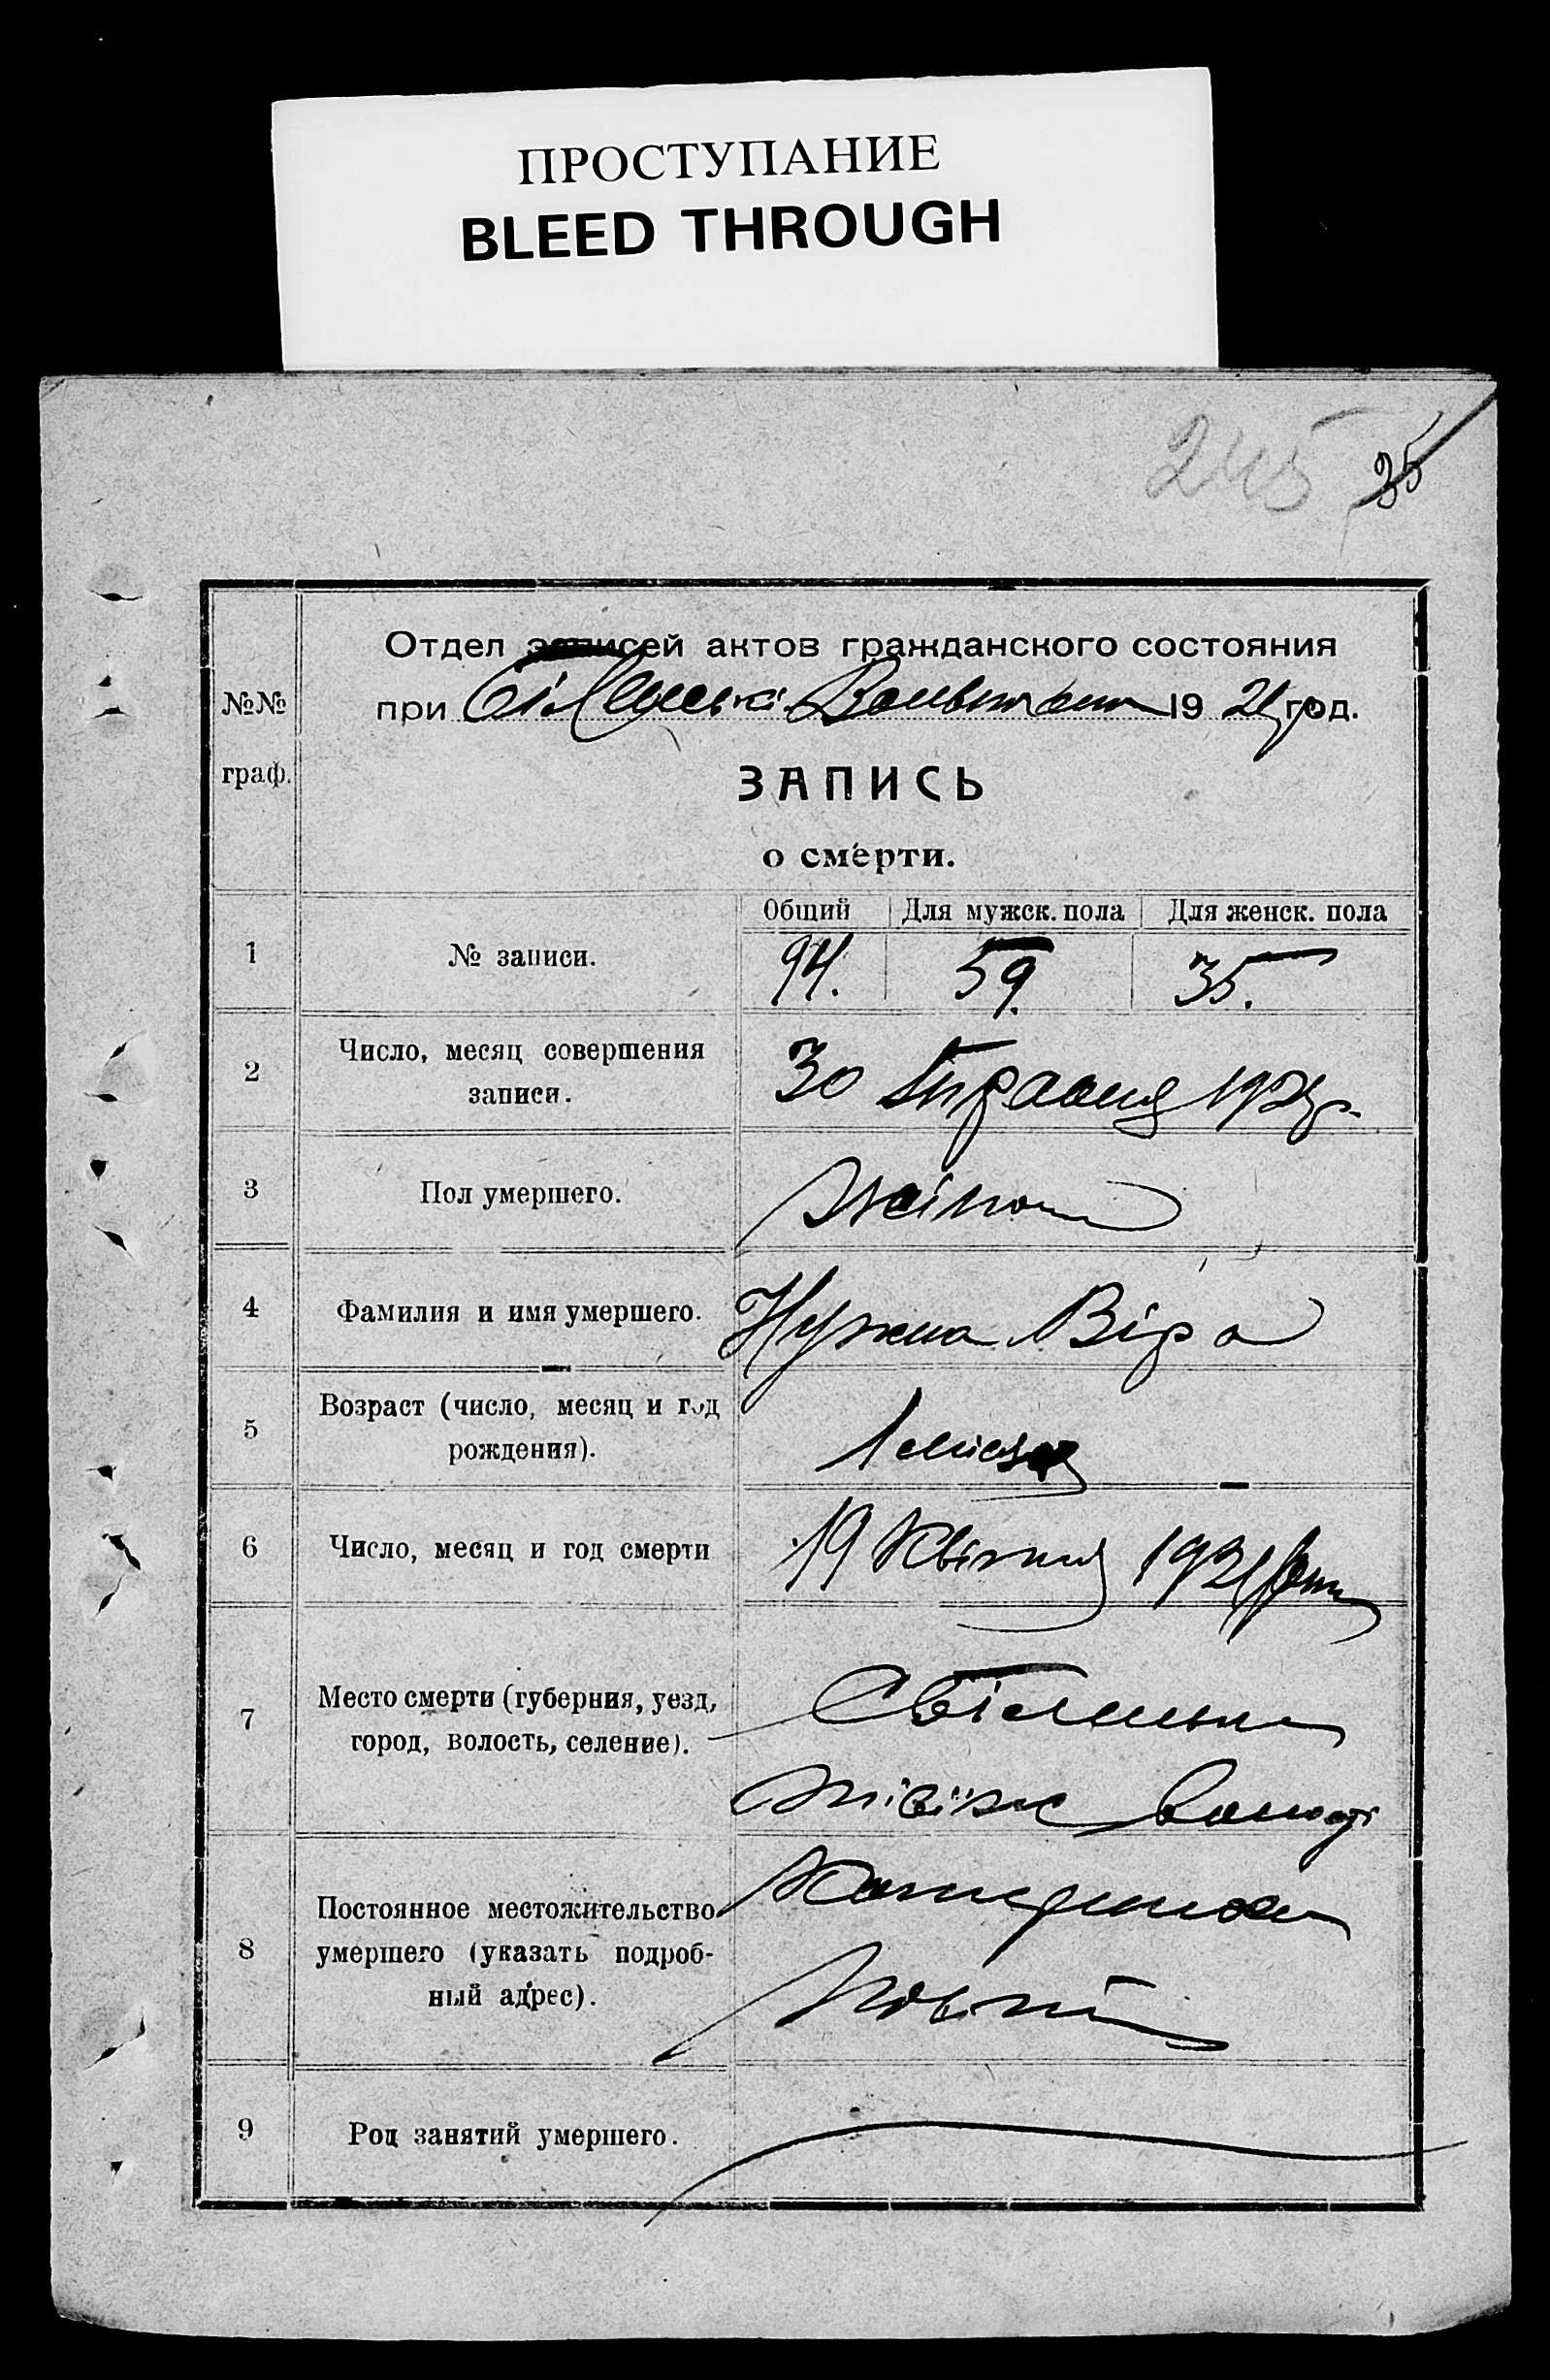 ПРОСТУПАНИЕ
BLEED THROUGH
245 35
№№ граф.
Отдел записей актов гражданского состояния
при 1921 год.
ЗАПИСЬ
о смерти.
Общий Для мужск. пола Для женск. пола
1 № записи. 94. 59. 35.
2 Число, месяц совершения записи. 30 Травня 1921 р.
3 Пол умершего. Жіноч
4 Фамилия и имя умершего. Нужна Віра
5 Возраст (число, месяц и год рождения). 1 місяц
6 Число, месяц и год смерти 19 Квітня 1921
7 Место смерти (губерния, уезд, город, волость, селение).
8 Постоянное местожительство умершего (указать подробный адрес).
9 Род занятий умершего.